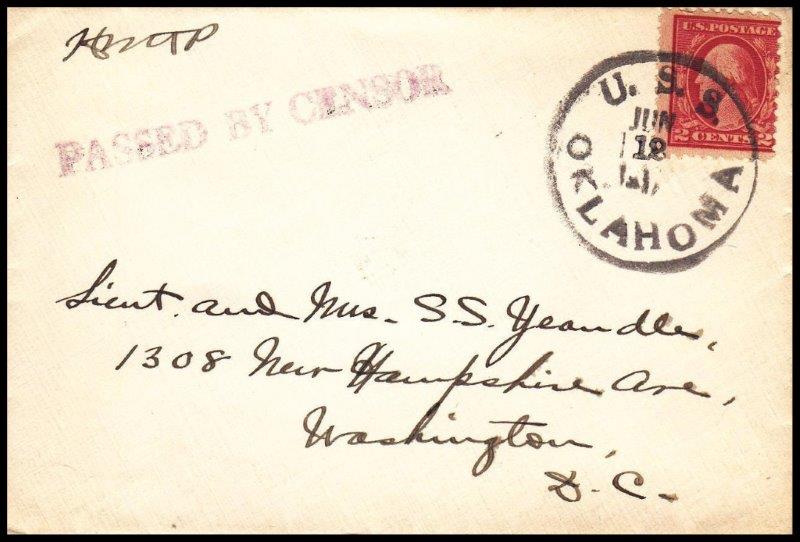 PASSED BY CENSOR
U.S. POSTAGE
2 CENTS 2
U. S. S.
JUN
12
OKLAHOMA
Lieut. and Mrs. S.S. Yeandle,
1308 New Hampshire Ave,
Washington,
D. C.